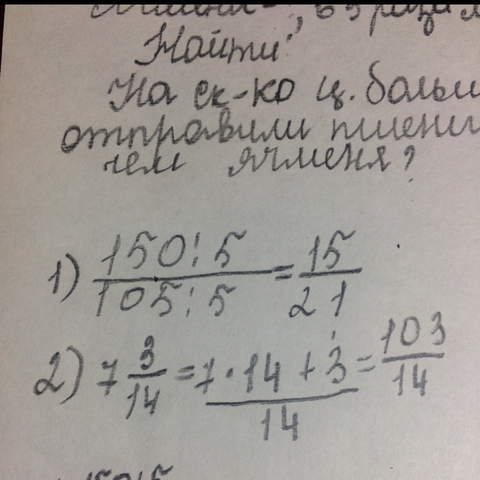 Найти:
На ск-ко ц. больш
отправили пшени
чем ячменя?
1) 150:5 / 105:5 = 15 / 21
2) 7 3/14 = 7·14+3 / 14 = 103 / 14